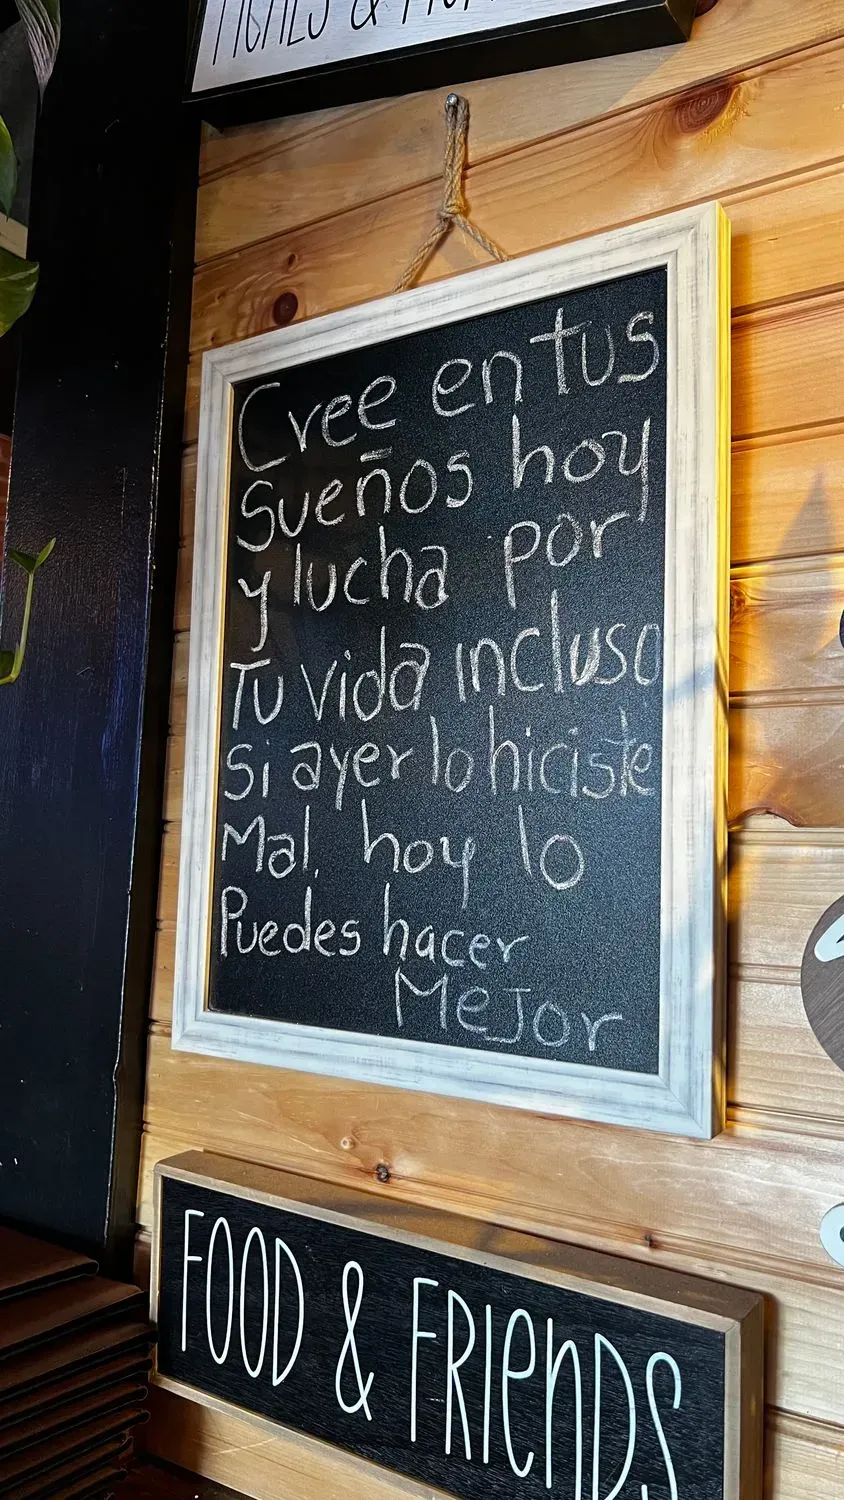 MEALS &
Cree en tus
Sueños hoy
y lucha por
Tu vida incluso
Si ayer lo hiciste
Mal, hoy lo
Puedes hacer
MeJor
FOOD & FRIenDS